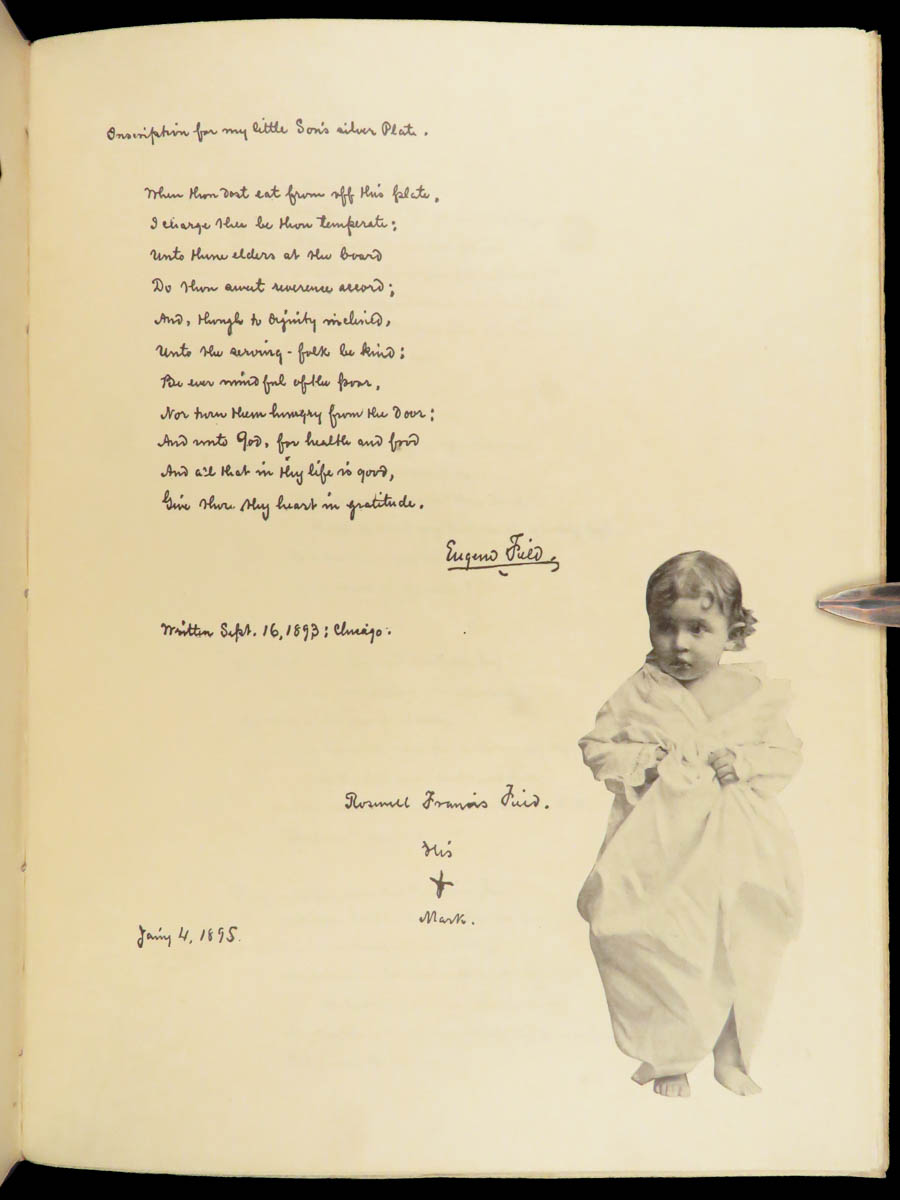 Inscription for my little Son's silver Plate.
When thou dost eat from off this plate,
I charge thee be thou temperate;
Unto thine elders at the board
Do thou sweet reverence accord;
And, though to dignity inclined,
Unto the serving-folk be kind;
Be ever mindful of the poor,
Nor turn them hungry from the door;
And unto God, for health and food
And all that in thy life is good,
Give thou thy heart in gratitude.
Eugene Field.
Written Sept. 16, 1893; Chicago.
Roswell Francis Field.
His
Mark.
Jany 4, 1895.